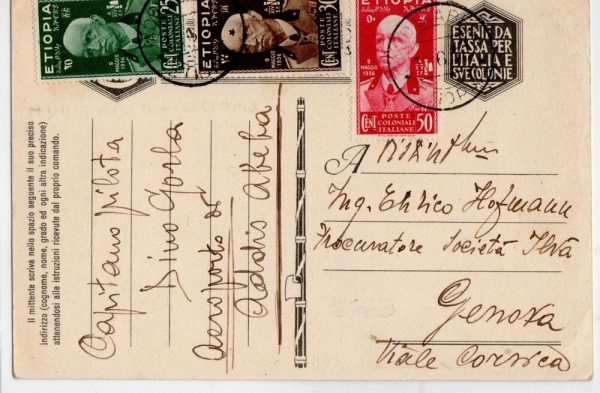 ETIOPIA
9
MAGGIO
1936
POSTE
COLONIALI
ITALIANE
CENT 25
ETIOPIA
9
MAGGIO
1936
POSTE
COLONIALI
ITALIANE
CENT 30
ETIOPIA
9
MAGGIO
1936
POSTE
COLONIALI
ITALIANE
CENT 50
ESENTE DA
TASSA PER
L'ITALIA E
SVE COLONIE
Il mittente scriva nello spazio seguente il suo preciso
indirizzo (cognome, nome, grado ed ogni altra indicazione)
attenendosi alle istruzioni ricevute dal proprio comando.
Capitano pilota
Dino Gorla
Aeroporto di
Addis Abeba
A
Ing. Enrico Hofmann
Procuratore Società Ilva
Genova
Viale Corsica